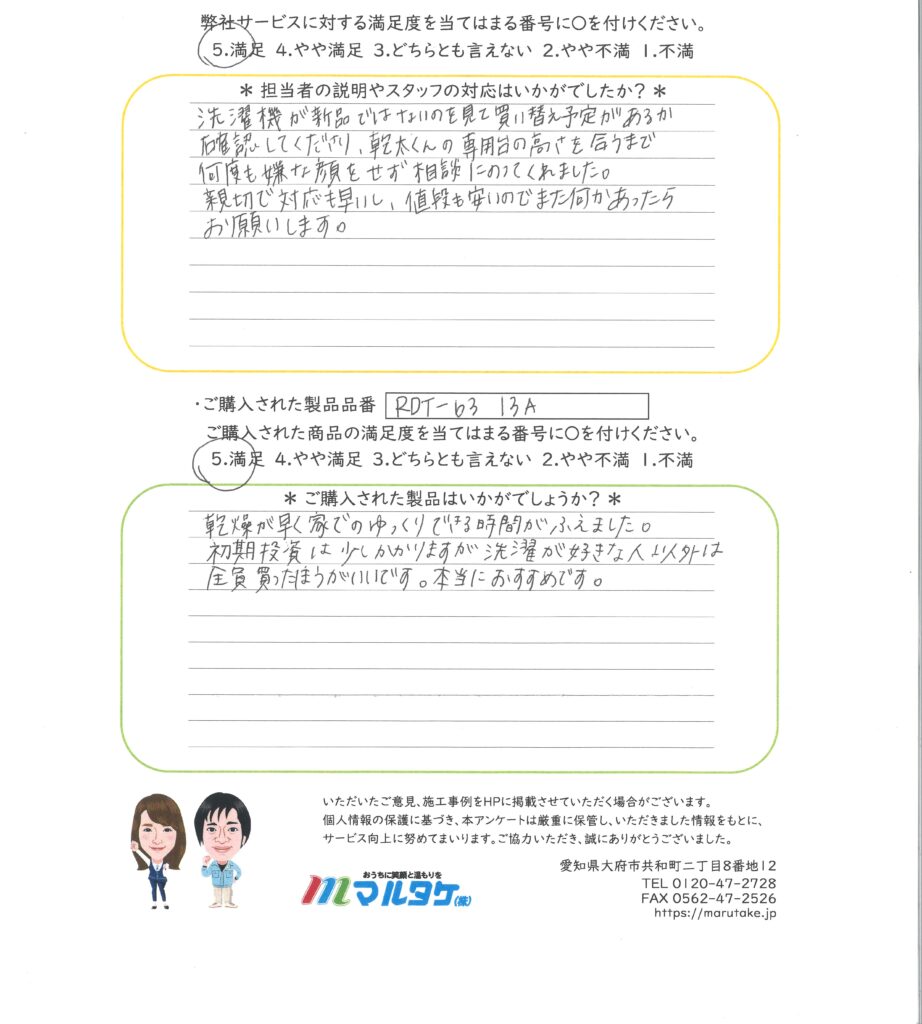 弊社サービスに対する満足度を当てはまる番号に〇を付けください。
5.満足 4.やや満足 3.どちらとも言えない 2.やや不満 1.不満
＊ 担当者の説明やスタッフの対応はいかがでしたか？ ＊
洗濯機が新品ではないのを見て買い替え予定があるか
確認してくださり、乾太くんの専用台の高さを合うまで
何度も嫌な顔をせず相談にのってくれました。
親切で対応も早いし、値段も安いのでまた何かあったら
お願いします。
・ご購入された製品品番 RDT-63 13A
ご購入された商品の満足度を当てはまる番号に〇を付けください。
5.満足 4.やや満足 3.どちらとも言えない 2.やや不満 1.不満
＊ ご購入された製品はいかがでしょうか？ ＊
乾燥が早く家でのゆっくりできる時間がふえました。
初期投資は少しかかりますが洗濯が好きな人以外は
全員買ったほうがいいです。本当におすすめです。
いただいたご意見、施工事例をHPに掲載させていただく場合がございます。
個人情報の保護に基づき、本アンケートは厳重に保管し、いただきました情報をもとに、
サービス向上に努めてまいります。ご協力いただき、誠にありがとうございました。
おうちに笑顔と温もりを
マルタケ(株)
愛知県大府市共和町二丁目8番地12
TEL 0120-47-2728
FAX 0562-47-2526
https://marutake.jp